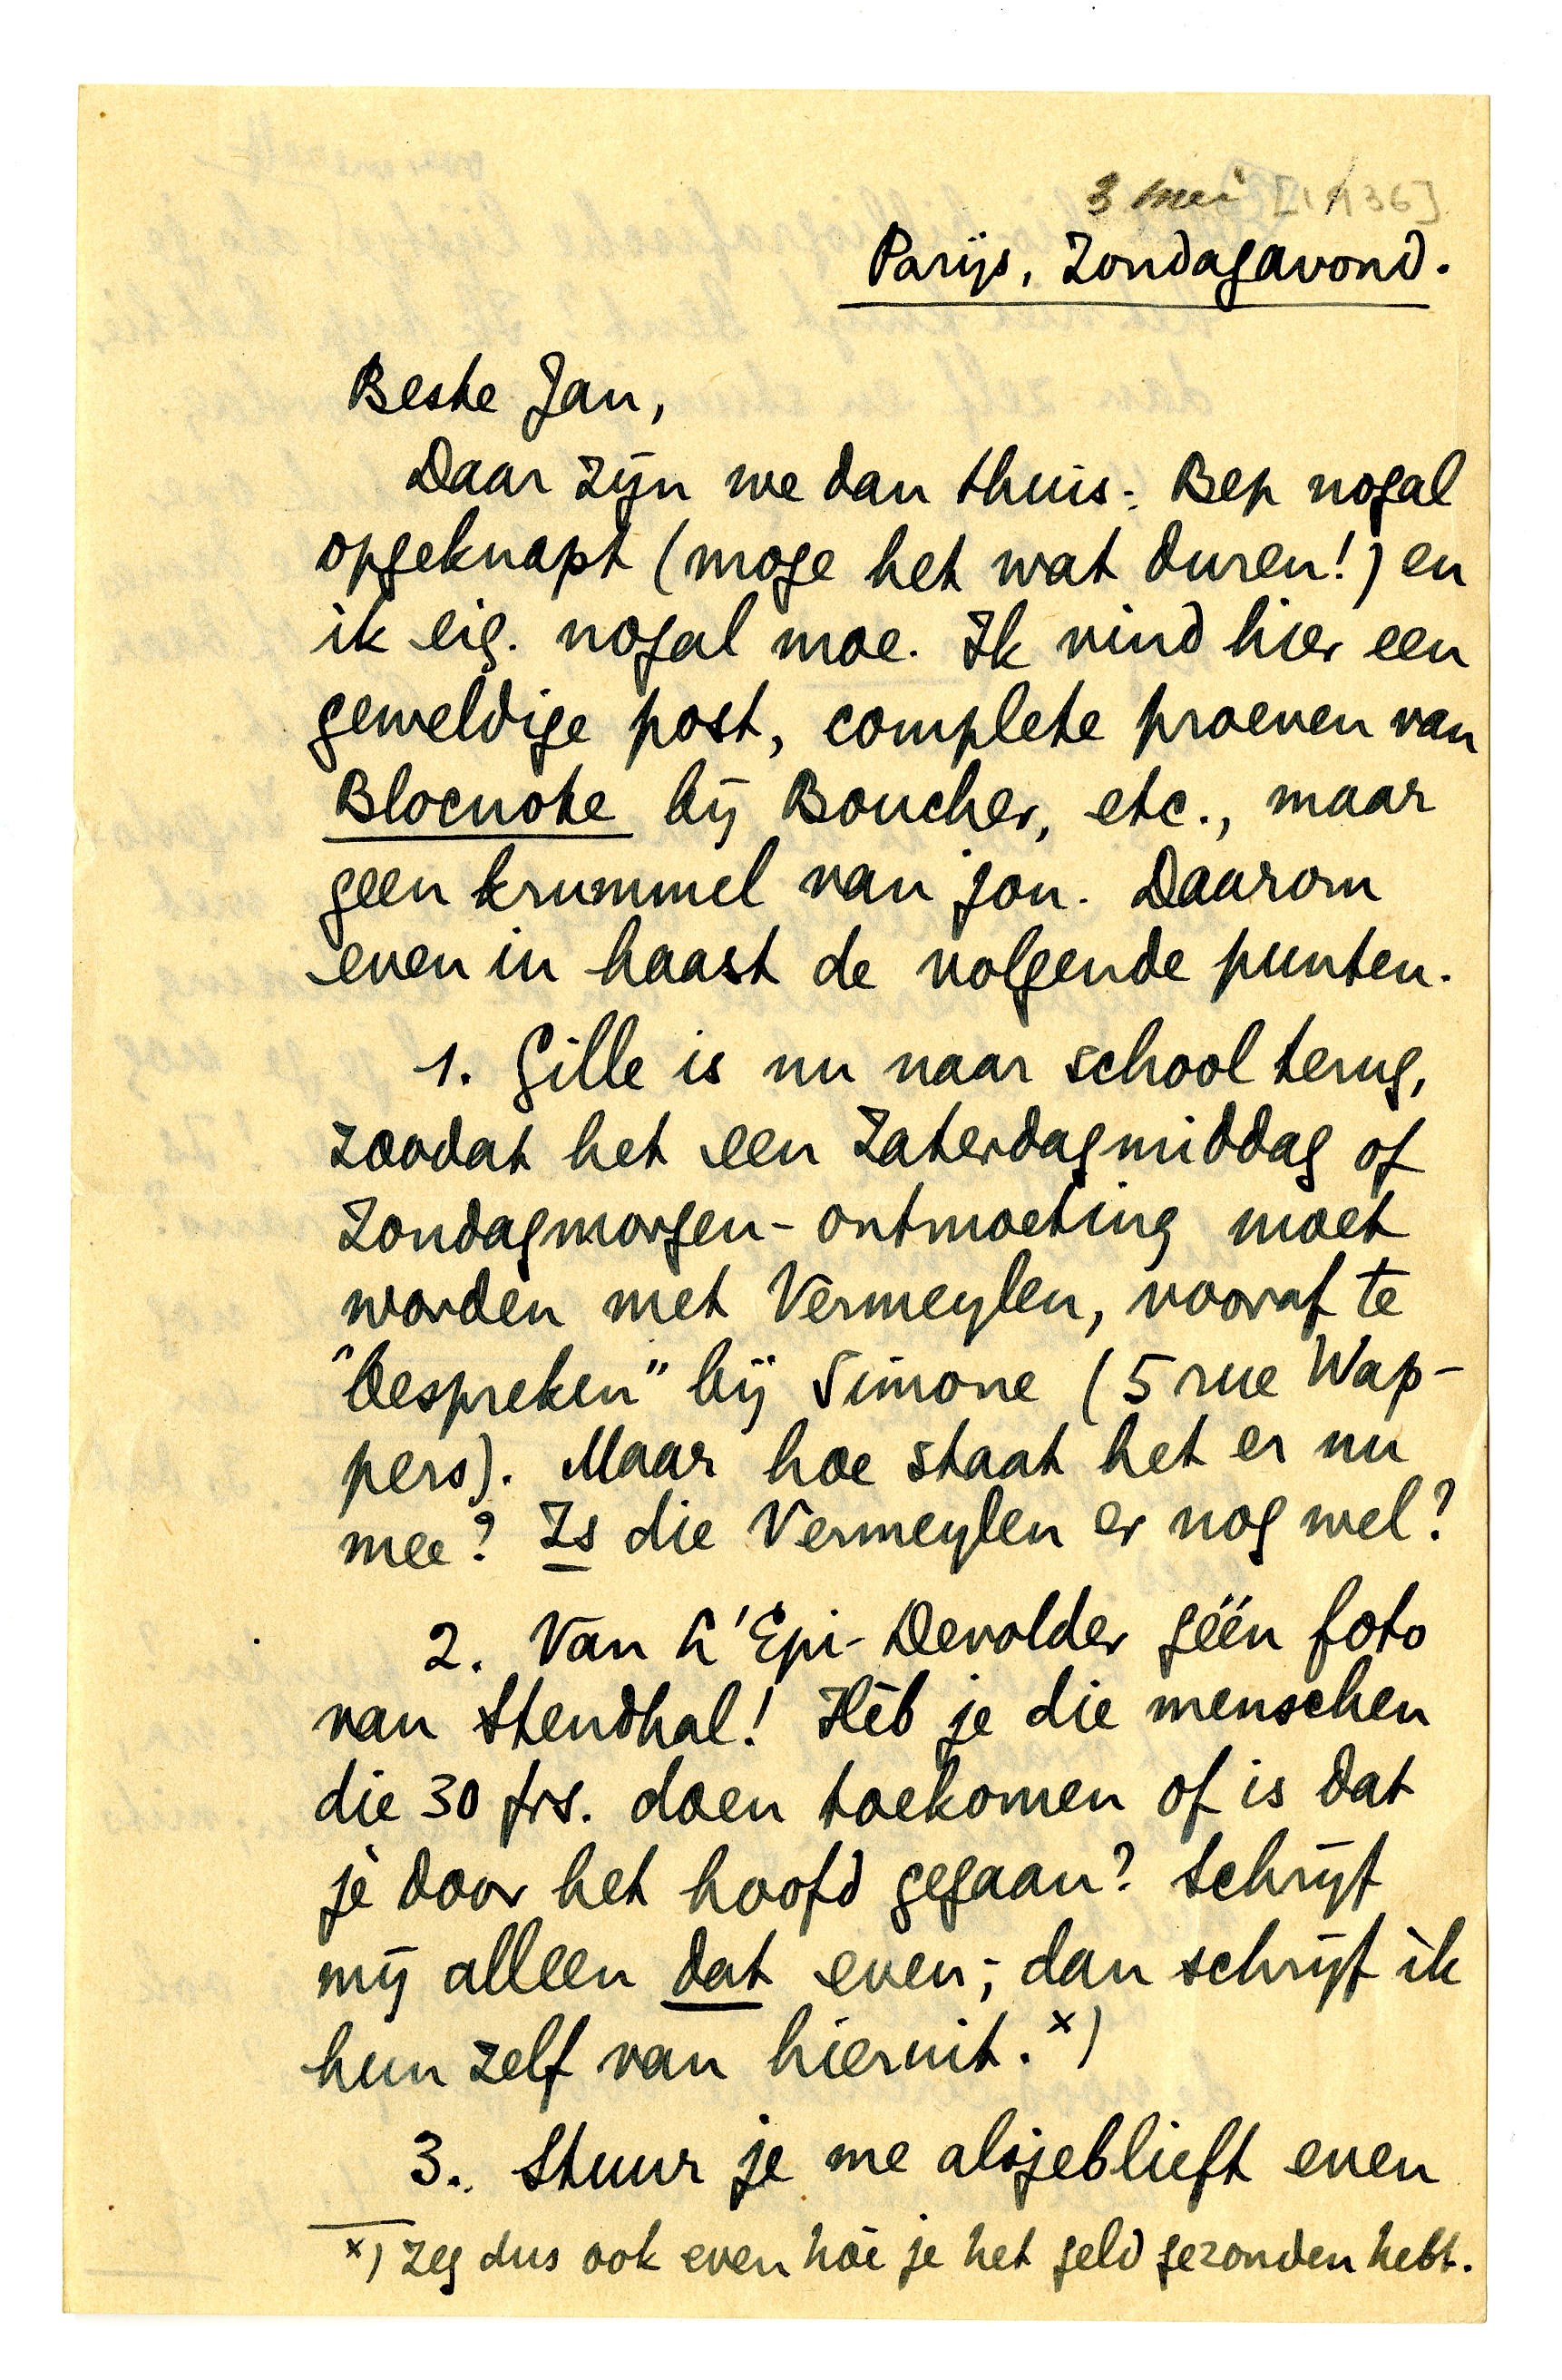 3 mei [1936]
Parijs, Zondagavond.
Beste Jan,
Daar zijn we dan thuis; Bep nogal
opgeknapt (moge het wat duren!) en
ik eig. nogal moe. Ik vind hier een
geweldige post, complete proeven van
Blocnote bij Boucher, etc., maar
geen krummel van jou. Daarom
even in haast de volgende punten.
1. Gille is nu naar school terug,
zoodat het een Zaterdagmiddag of
Zondagmorgen-ontmoeting moet
worden met Vermeylen, vooraf te
"bespreken" bij Simone (5 rue Wap-
pers). Maar hoe staat het er nu
mee? Is die Vermeylen er nog wel?
2. Van L'Epi-Devolder géén foto
van Stendhal! Hèb je die menschen
die 30 frs. doen toekomen of is dat
je door het hoofd gegaan? Schrijf
mij alleen dat even; dan schrijf ik
hun zelf van hieruit. x)
3. Stuur je me alsjeblieft even
x) Zeg dus ook even hóé je het geld gezonden hebt.